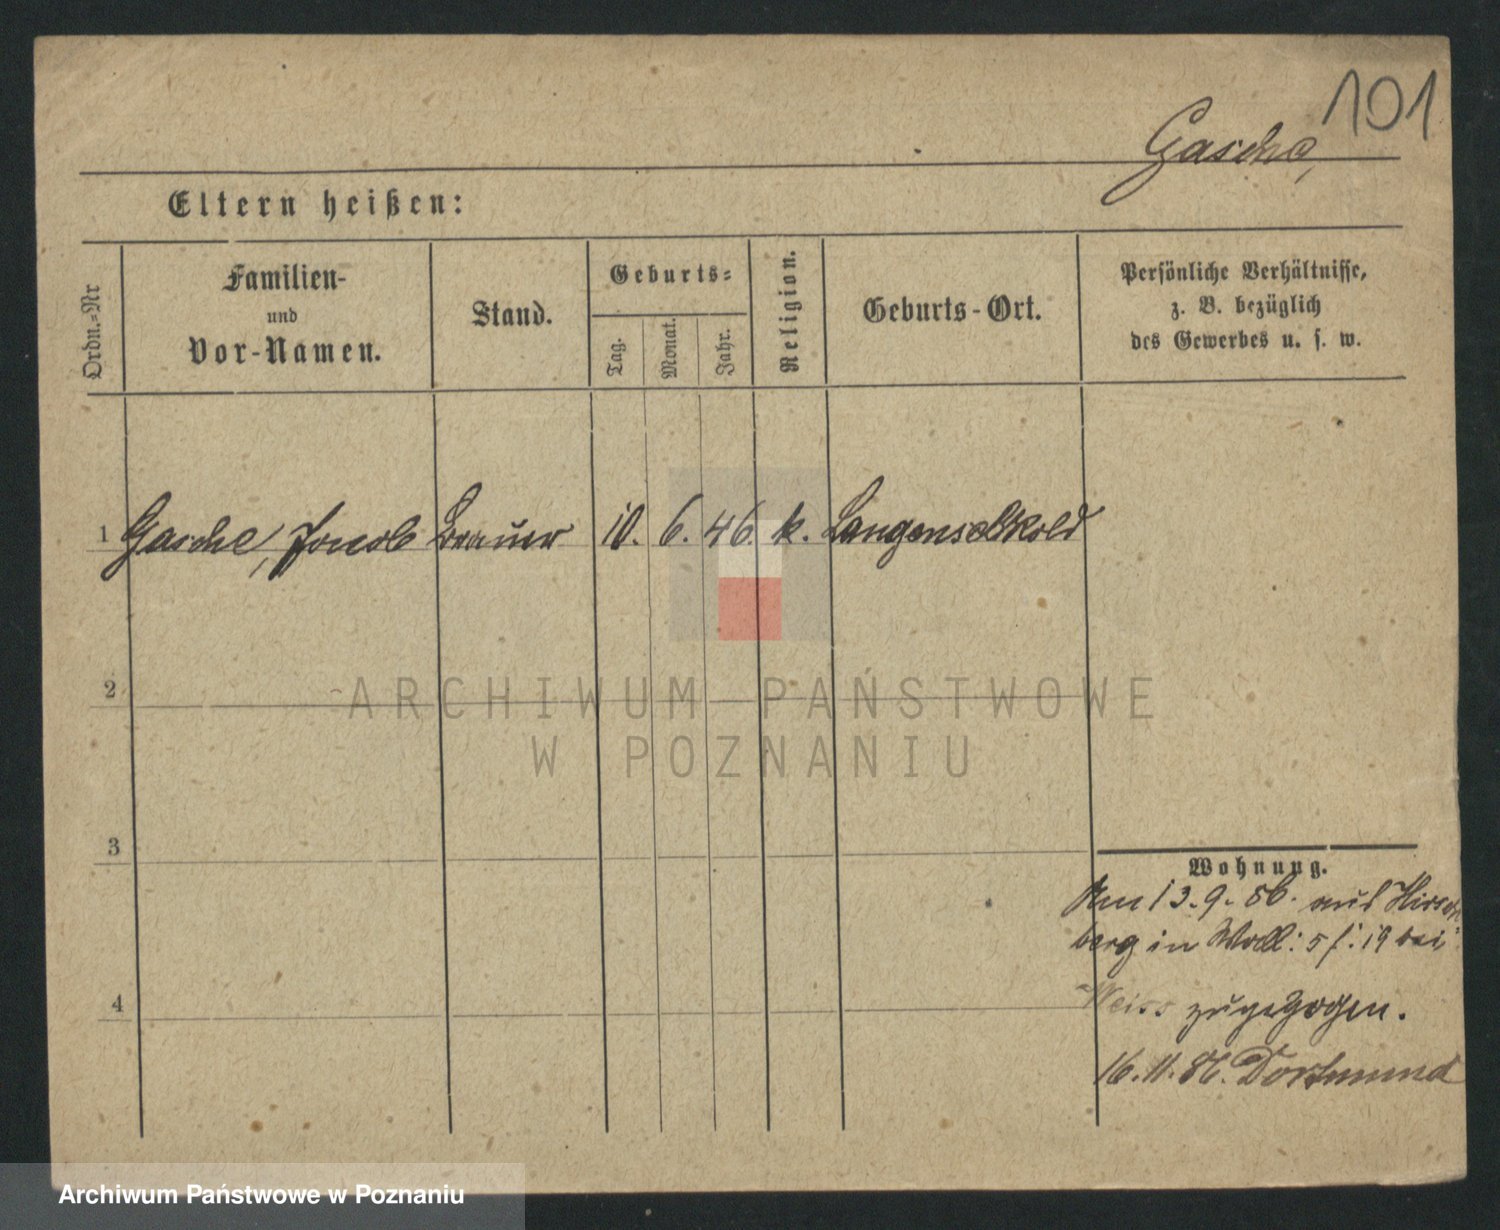 101
Gasche,
Eltern heißen:
Ordn.=Nr
Familien-
und
Vor-Namen.
Stand.
Geburts=
Tag.
Monat.
Jahr.
Religion.
Geburts-Ort.
Persönliche Verhältnisse,
z. B. bezüglich
des Gewerbes u. s. w.
1 Gasche, Jacob Brauer 10. 6. 46. k. Langenselbold
2
3
4
Wohnung.
Am 13.9.86. aus Hirsch
berg in Wall: 5 f: 19 bei
Weiss zugezogen.
16.11.86. Dortmund
ARCHIWUM PAŃSTWOWE
W POZNANIU
Archiwum Państwowe w Poznaniu